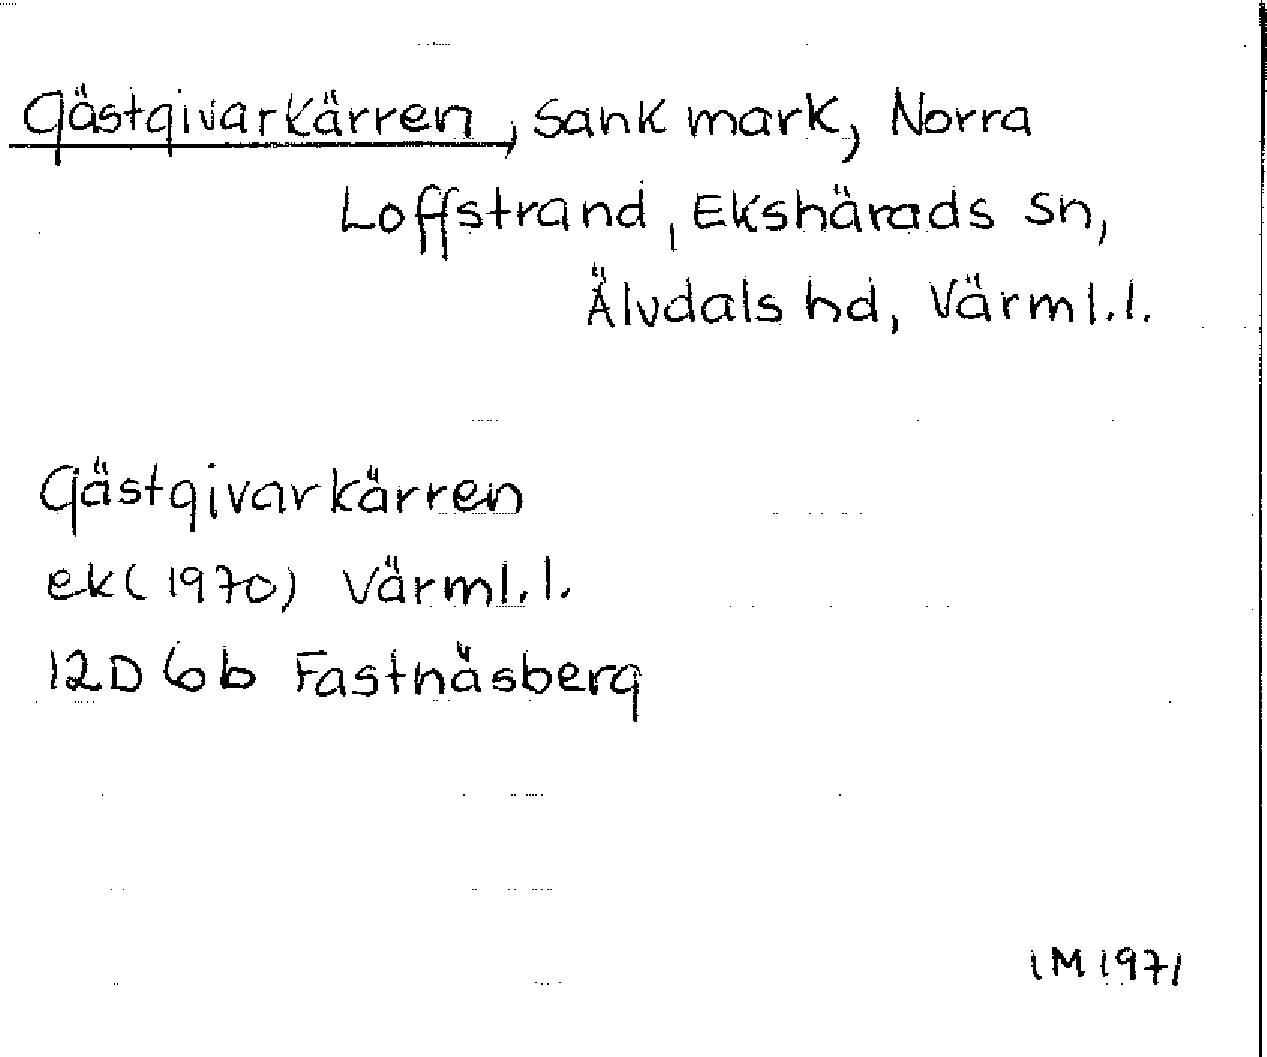 Gästgivarkärren, Sank mark, Norra
Loffstrand, Ekshärads sn,
Älvdals hd, Värml.l.
Gästgivarkärren
ek (1970) Värml.l.
12D 6b Fastnäsberg
IM 1971